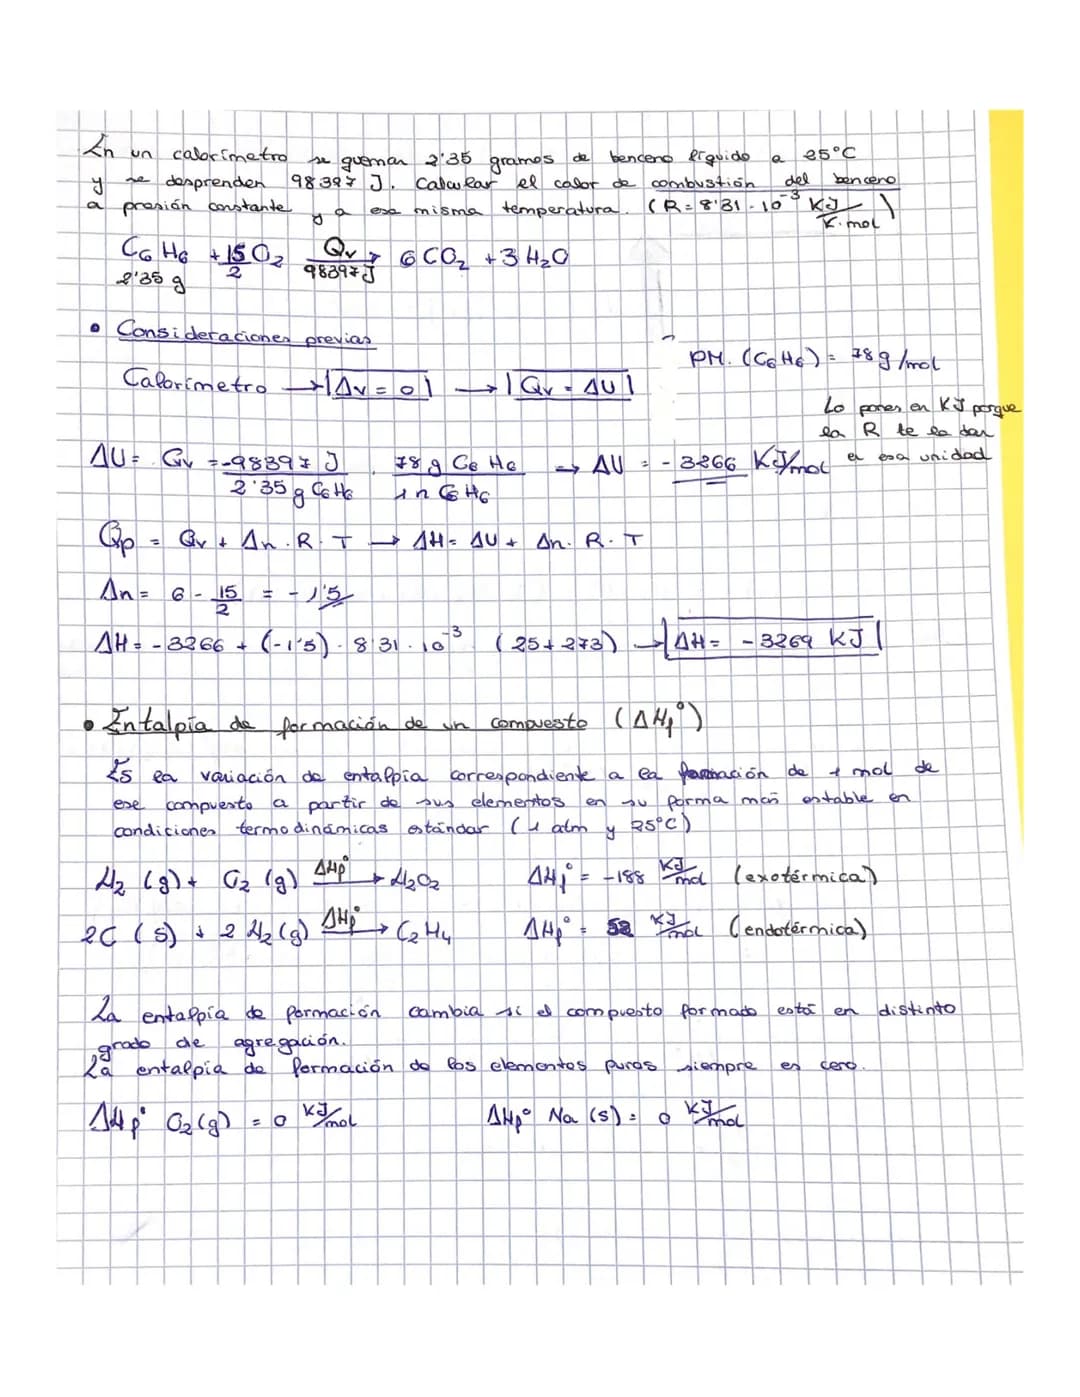 En un calorímetro se queman 2'35 gramos de benceno líquido a 25°C
y se desprenden 98397 J. Calcular el calor de combustión del benceno
a presión constante y a esa misma temperatura. (R = 8'31 · 10⁻³ KJ/K·mol)
C₆H₆ + 15/2 O₂ Qv/98397J → 6CO₂ + 3H₂O
2'35 g
• Consideraciones previas
PM. (C₆H₆) = 78 g/mol
Calorímetro → |Δv = 0| → |Qv = ΔU|
Lo pones en KJ porque
la R te la dan
en esa unidad
ΔU = Qv = -98397 J / 2'35 g C₆H₆ · 78 g C₆H₆ / 1 n C₆H₆ → ΔU = -3266 KJ/mol
Qp = Qv + Δn · R · T → ΔH = ΔU + Δn · R · T
Δn = 6 - 15/2 = -1'5
ΔH = -3266 + (-1'5) · 8'31 · 10⁻³ · (25+273) → |ΔH = -3269 KJ|
• Entalpía de formación de un compuesto (ΔHf°)
Es la variación de entalpía correspondiente a la formación de 1 mol de
ese compuesto a partir de sus elementos en su forma más estable en
condiciones termodinámicas estándar (1 atm y 25°C)
H₂ (g) + O₂ (g) ΔHf° → H₂O₂ ΔHf° = -188 KJ/mol (exotérmica)
2C (s) + 2 H₂ (g) ΔHf° → C₂H₄ ΔHf° = 52 KJ/mol (endotérmica)
La entalpía de formación cambia si el compuesto formado está en distinto
grado de agregación.
La entalpía de formación de los elementos puros siempre es cero.
ΔHf° O₂(g) = 0 KJ/mol ΔHf° Na (s) = 0 KJ/mol